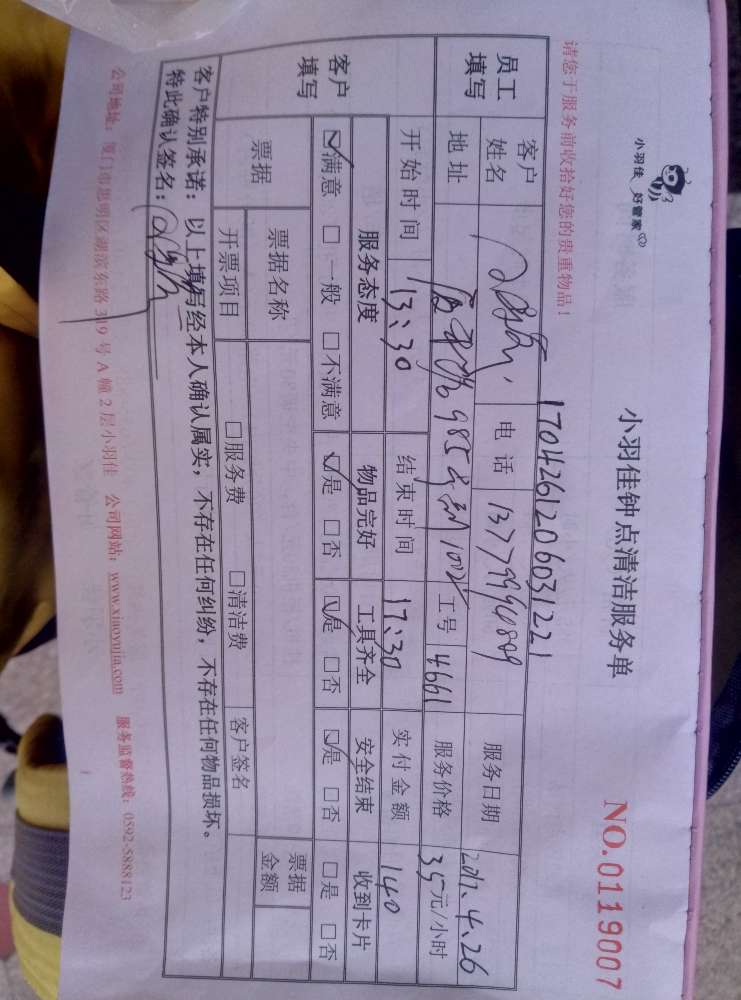 小羽佳 好管家
小羽佳钟点清洁服务单
NO.0119007
请您于服务前收拾好您的贵重物品!
1704261206031221
员工填写 客户姓名 电话 服务日期 2017.4.26
地址 985 1002 工号 4661 服务价格 35元/小时
开始时间 13:30 结束时间 17:30 实付金额 140
客户填写 服务态度 物品完好 工具齐全 安全结束 收到卡片
☑满意 □一般 □不满意 ☑是 □否 ☑是 □否 ☑是 □否 □是 □否
票据 票据名称 票据金额
开票项目 □服务费 □清洁费 客户签名
客户特别承诺:以上填写经本人确认属实,不存在任何纠纷,不存在任何物品损坏。
特此确认签名:
公司地址:厦门市思明区湖滨东路319号A幢2层小羽佳 公司网站:www.xiaoyujia.com 服务监督热线:0592-5888123